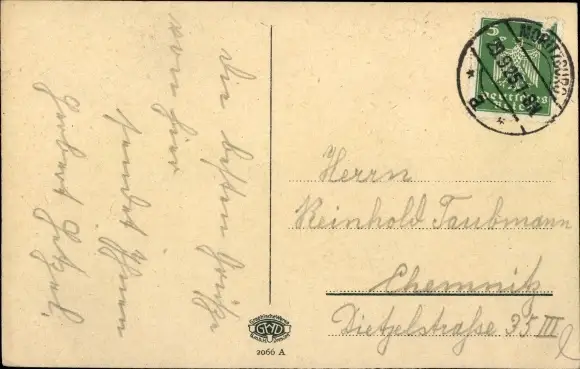 Die besten Grüße
von hier
sendet Ihnen
Herbert
5
Deutsches
Reich
MORITZBURG
Herrn
Reinhold Taubmann
Chemnitz
Dietzelstraße 35 III
l
GWD
2066 A